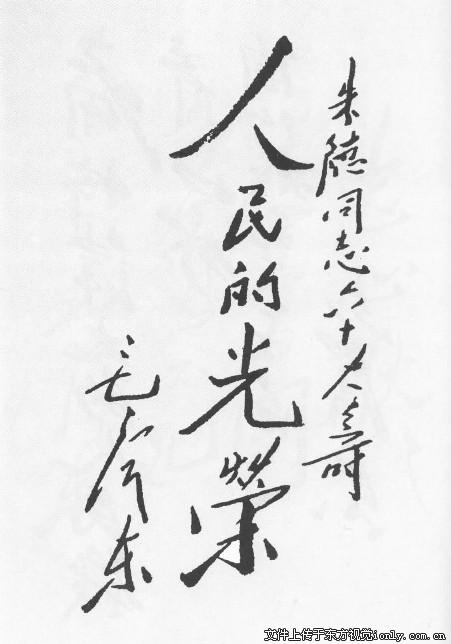 朱德同志六十大寿
人民的光荣
毛泽东
文件上传于东方视觉ionly.com.cn